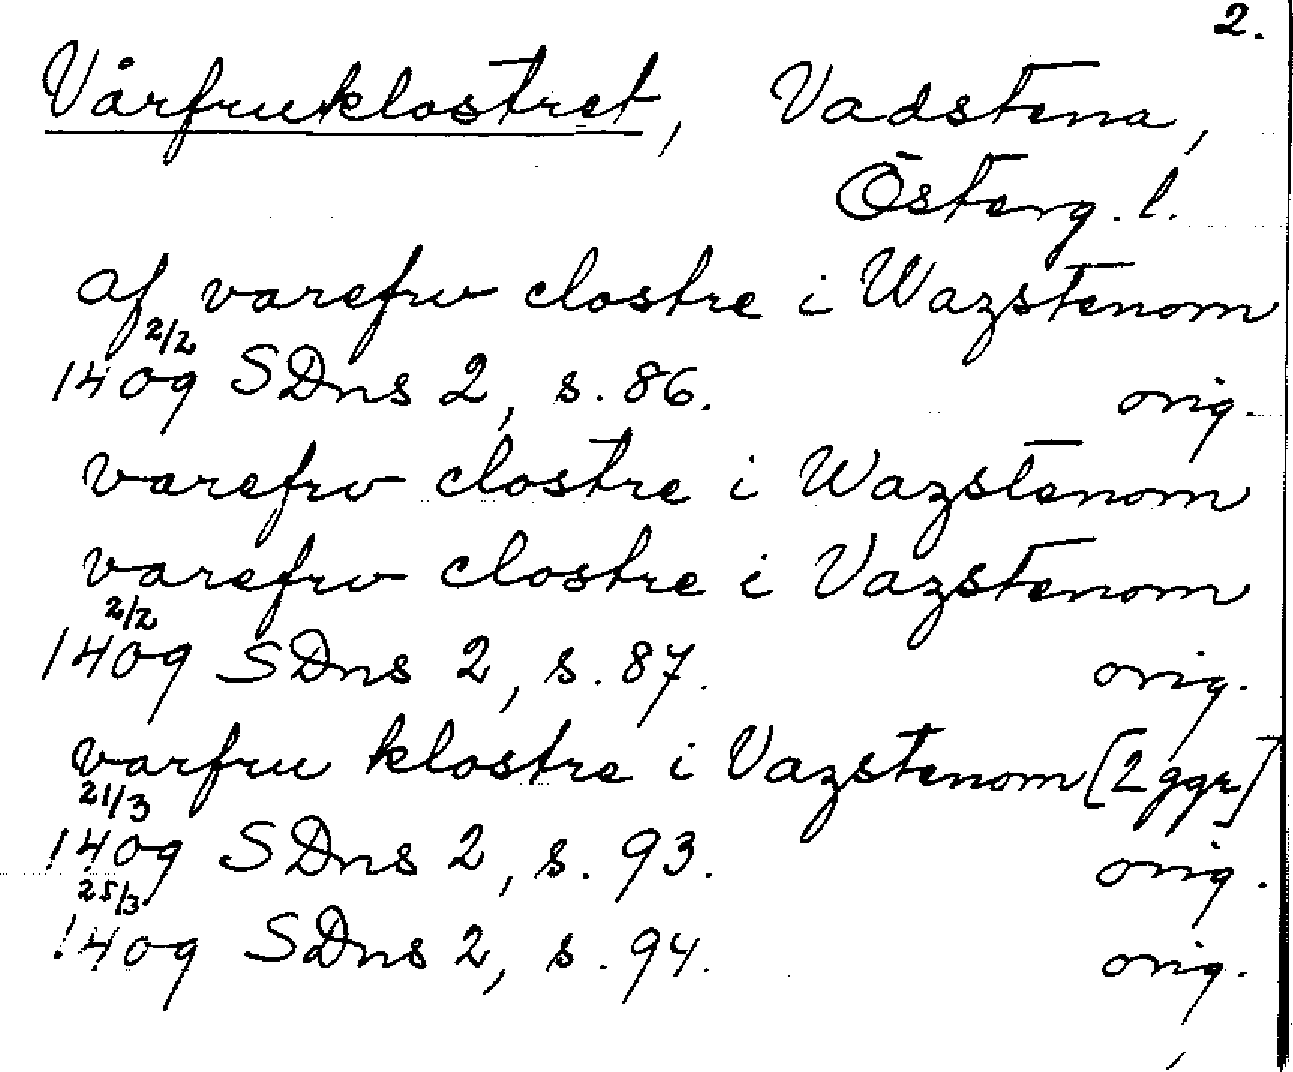 2.
Vårfruklostret, Vadstena,
Österg. l.
af varefrv clostre i Wazstenom
2/2
1409 SDns 2, s. 86. orig.
varefrv clostre i Wazstenom
varefrv clostre i Vazstenom
2/2
1409 SDns 2, s. 87. orig.
varfru klostre i Vazstenom [2 ggr]
21/3
1409 SDns 2, s. 93. orig.
25/3
1409 SDns 2, s. 94. orig.